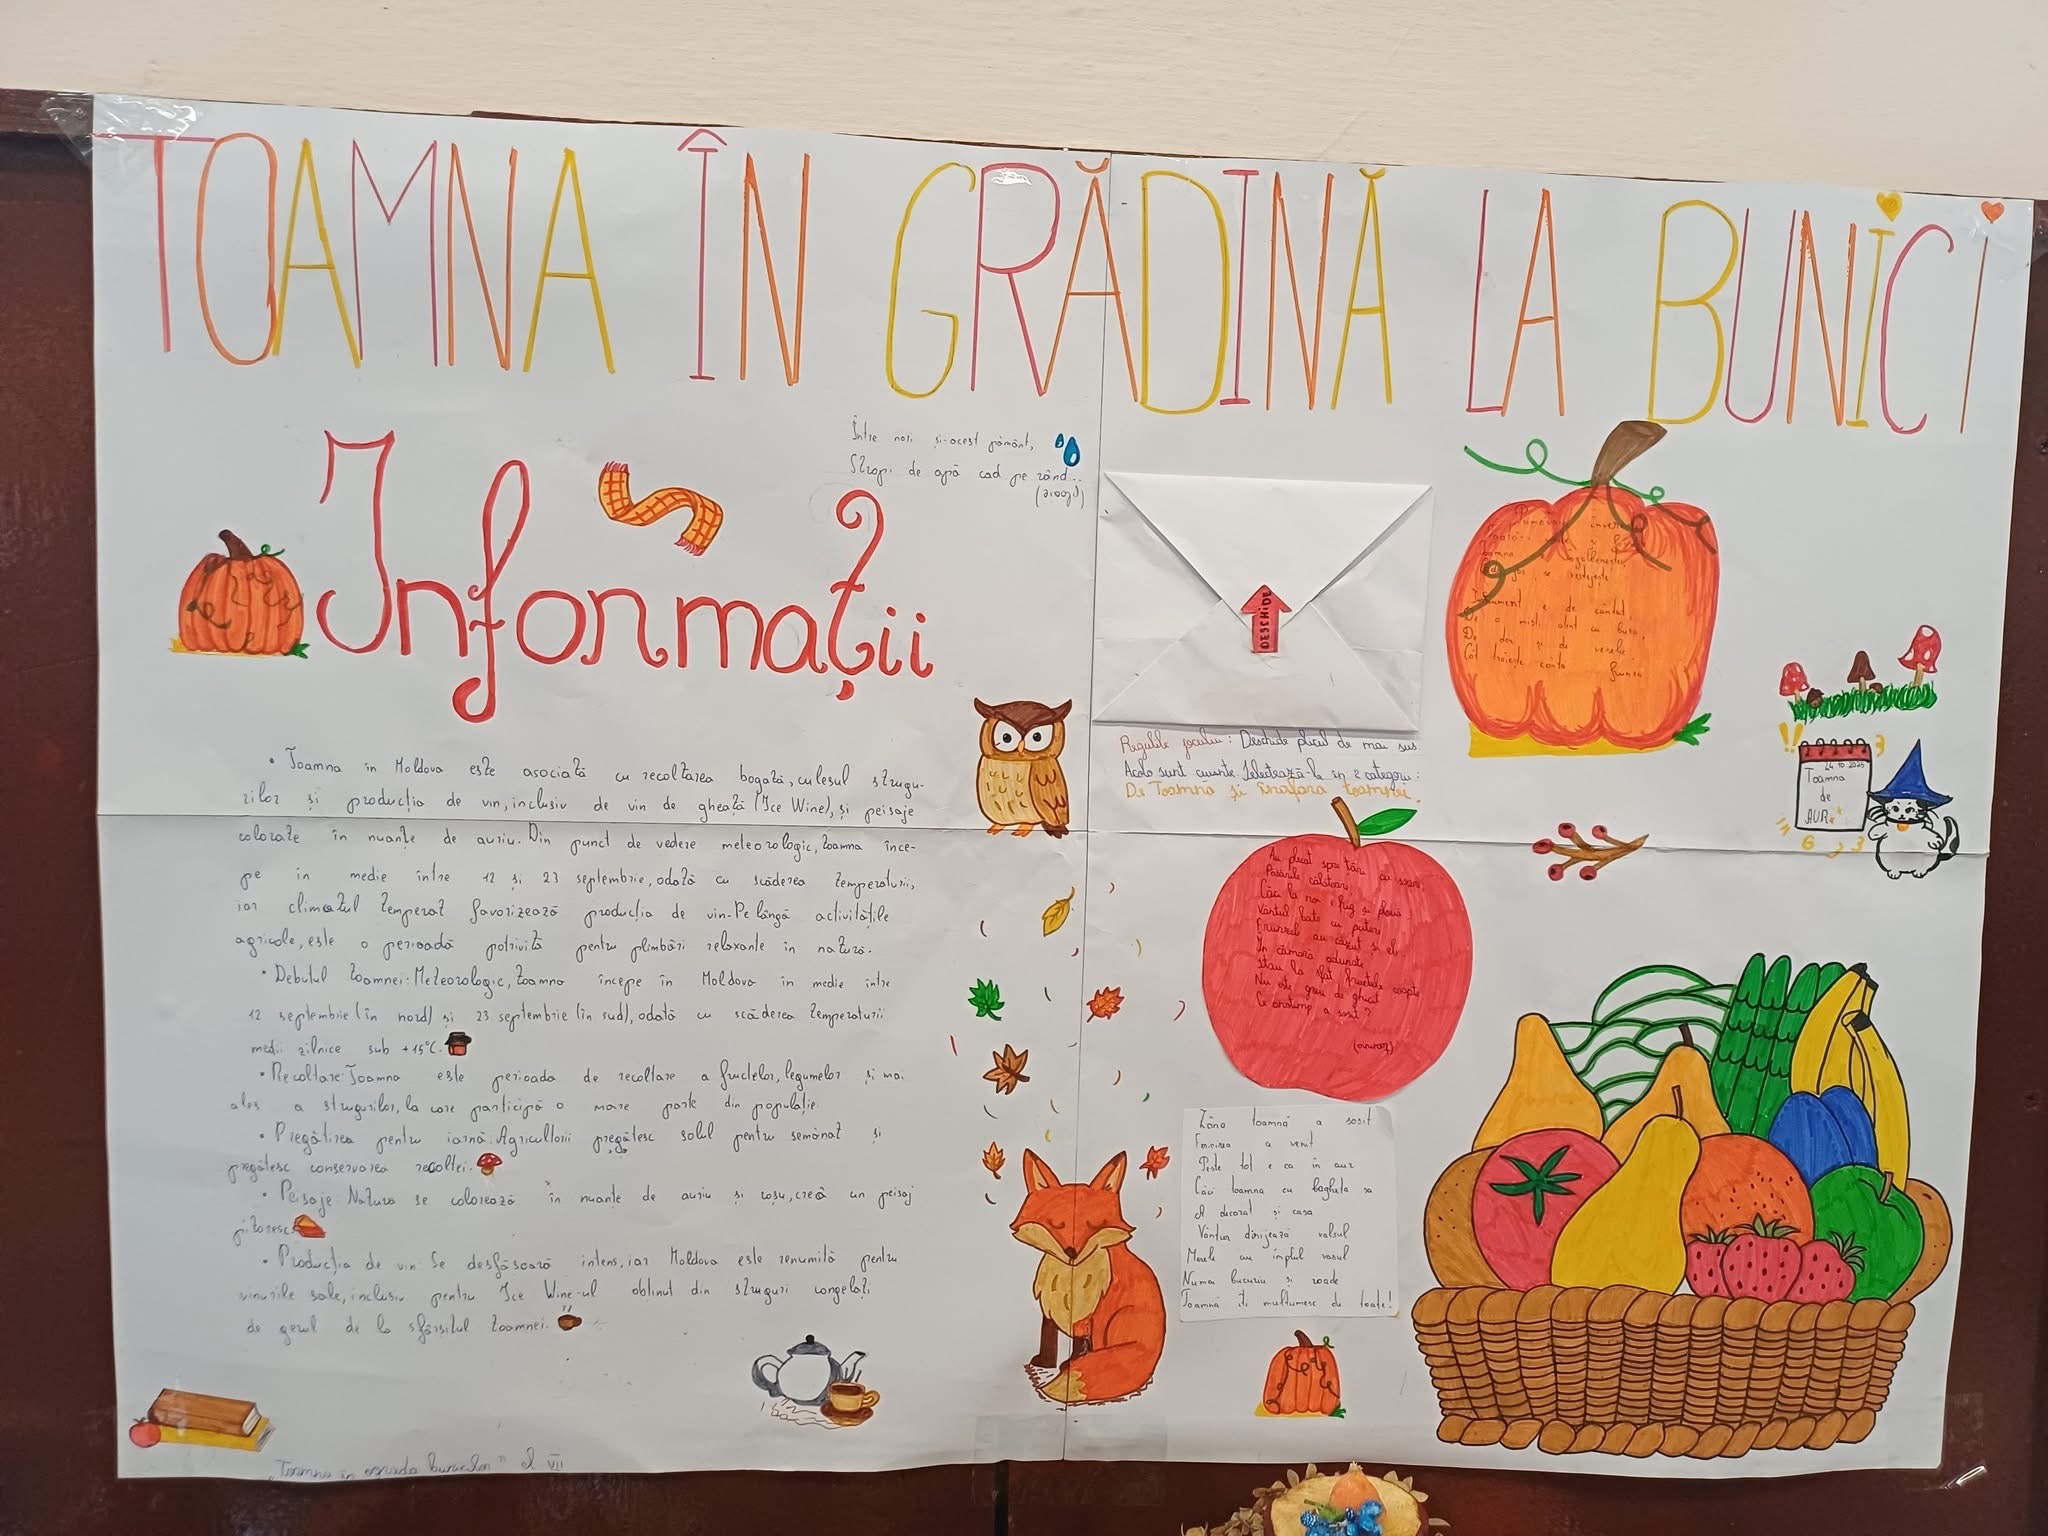 TOAMNA ÎN GRĂDINĂ LA BUNICI
Informații
Între nori și-acest pământ,
Stropi de apă cad pe rând...
(ploaie)
• Toamna în Moldova este asociată cu recoltarea bogată, culesul strugu-
rilor și producția de vin, inclusiv de vin de gheață (Ice Wine), și peisaje
colorate în nuanțe de auriu. Din punct de vedere meteorologic, toamna înce-
pe în medie între 12 și 23 septembrie, odată cu scăderea temperaturii,
iar climatul temperat favorizează producția de vin. Pe lângă activitățile
agricole, este o perioadă potrivită pentru plimbări relaxante în natură.
• Debutul toamnei: Meteorologic, toamna începe în Moldova în medie între
12 septembrie (în nord) și 23 septembrie (în sud), odată cu scăderea temperaturii
medii zilnice sub +15°C.
• Recoltare: Toamna este perioada de recoltare a fructelor, legumelor și mai
ales a strugurilor, la care participă o mare parte din populație.
• Pregătirea pentru iarnă: Agricultorii pregătesc solul pentru semănat și
pregătesc conservarea recoltei.
• Peisaje: Natura se colorează în nuanțe de auriu și roșu, creă un peisaj
pitoresc.
• Producția de vin: Se desfășoară intens, iar Moldova este renumită pentru
vinurile sale, inclusiv pentru Ice Wine-ul obținut din struguri congelați
de gerul de la sfârșitul toamnei.
"Toamna în ograda bunicilor" cl VII
DESCHIDE
Regulile jocului: Deschide plicul de mai sus.
Acolo sunt cuvinte. Selectează-le în 2 categorii:
De Toamna și înafara toamnei.
Toamna
se vestejește
Instrument e de cântat
De dor și de veselie
Cât trăiește cânta
24.10.2025
Toamna
de
AUR
Au plecat spre țări cu soare,
Păsările călătoare,
Căci la noi i frig și plouă
Vântul bate cu putere
Frunzele au căzut și el...
În cămară adunate
Stau la sfat fructele coapte
Nu este greu de ghicit
Ce anotimp a sosit?
(toamna)
Zâna toamnă a sosit
Fericirea a venit
Peste tot e ca în aur
Căci toamna cu bagheta sa
A decorat și casa
Vântur dirijează valsul
Merele au împlut vasul
Numai bucurii și roade
Toamnă îți mulțumesc de toate!